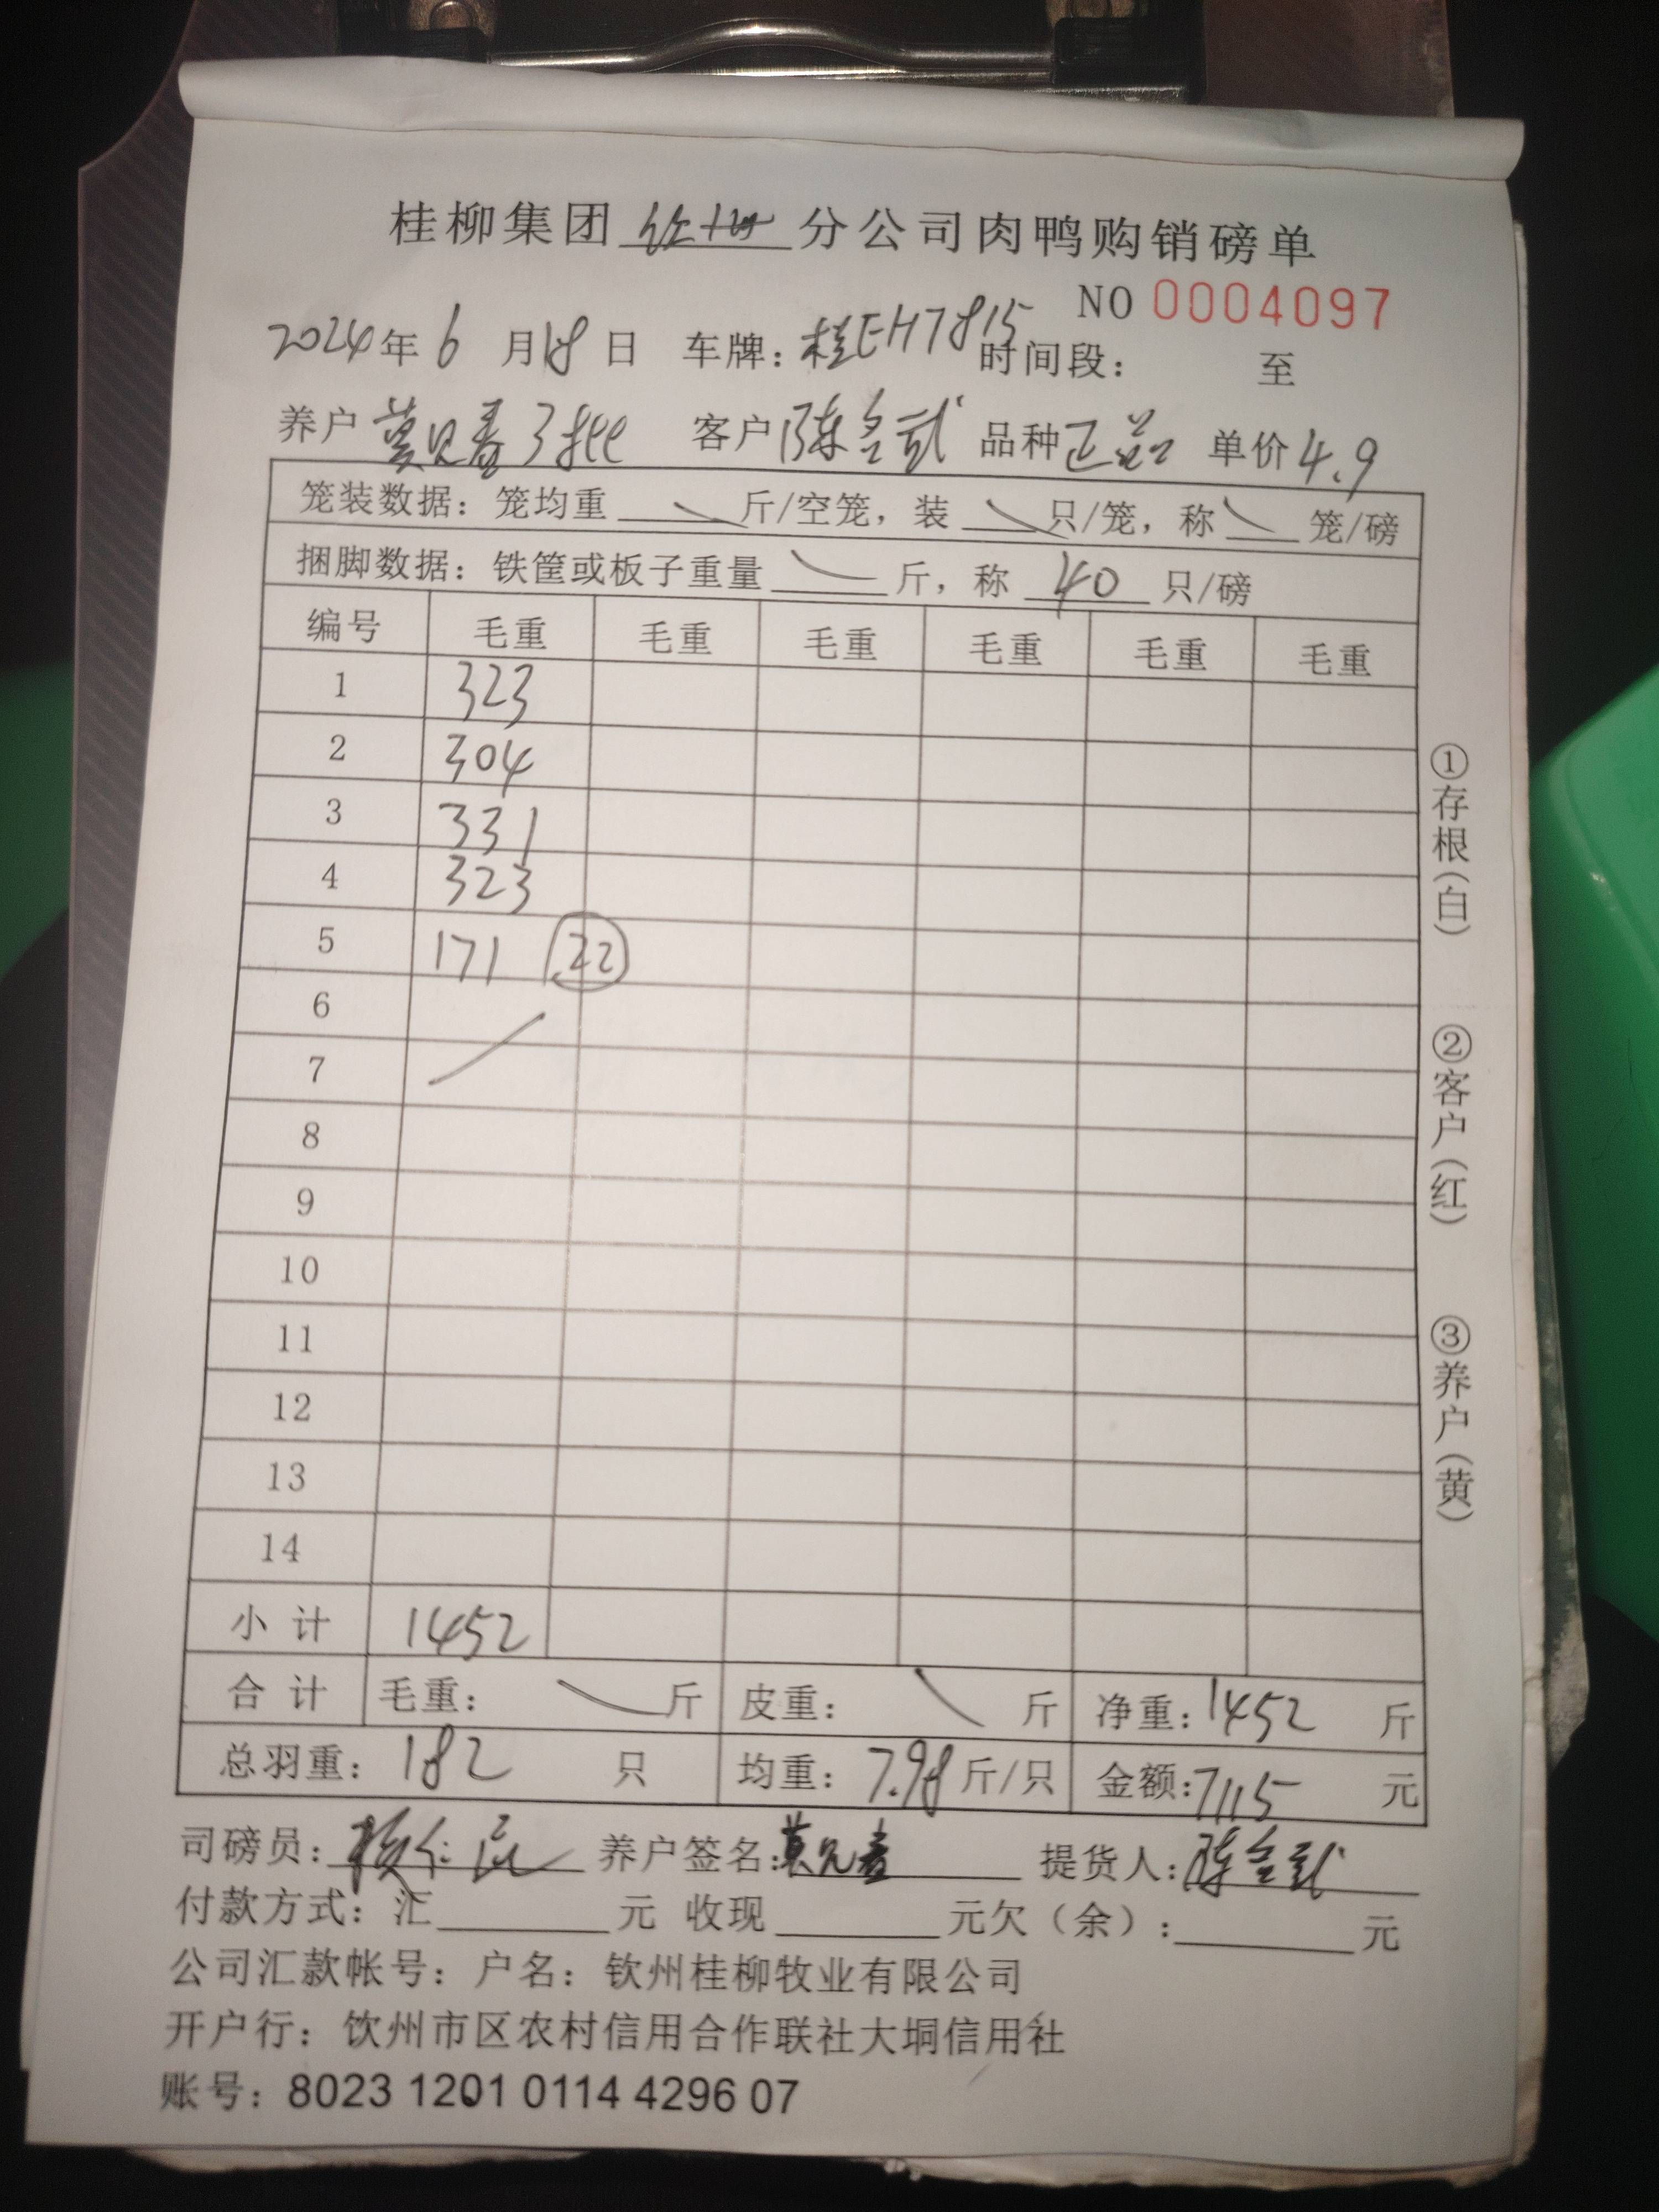 桂柳集团 钦州 分公司肉鸭购销磅单
NO 0004097
2024年 6 月 18 日 车牌：桂EH7815 时间段： 至
养户 莫见春3批 客户 陈全武 品种 正品 单价 4.9
笼装数据：笼均重 斤/空笼，装 只/笼，称 笼/磅
捆脚数据：铁筐或板子重量 斤，称 40 只/磅
编号 毛重 毛重 毛重 毛重 毛重 毛重
1 323
2 304
3 331
4 323
5 171 22
6
7
8
9
10
11
12
13
14
小计 1452
合计 毛重： 斤 皮重： 斤 净重：1452 斤
总羽重：182 只 均重：7.98 斤/只 金额：7115 元
司磅员： 养户签名：莫见春 提货人：陈全武
付款方式：汇 元 收现 元欠（余）： 元
公司汇款帐号：户名：钦州桂柳牧业有限公司
开户行：饮州市区农村信用合作联社大垌信用社
账号：8023 1201 0114 4296 07
①存根(白)
②客户(红)
③养户(黄)